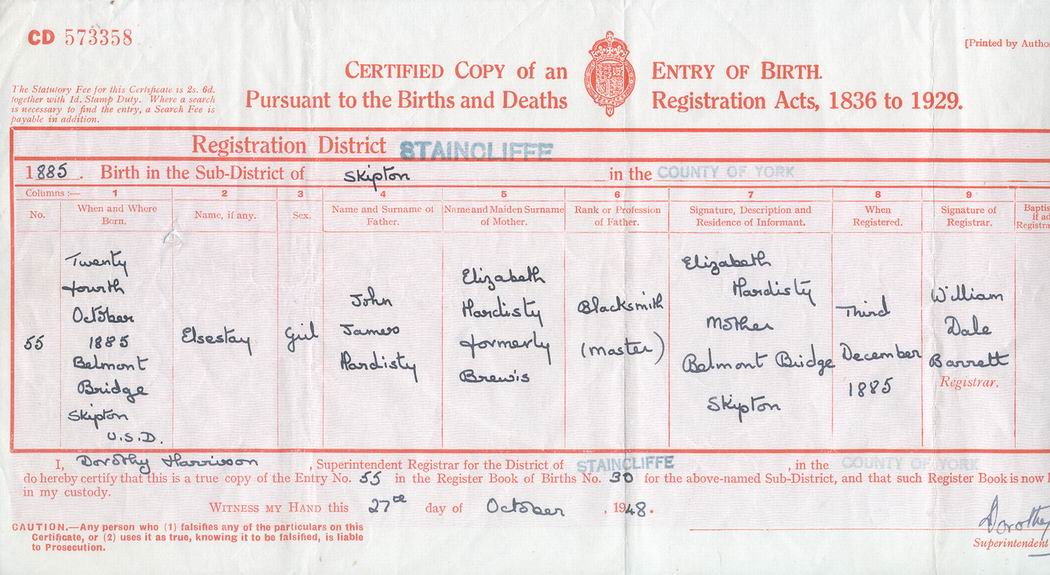 CD 573358
[Printed by Autho
CERTIFIED COPY of an ENTRY OF BIRTH.
Pursuant to the Births and Deaths Registration Acts, 1836 to 1929.
The Statutory Fee for this Certificate is 2s. 6d.
together with 1d. Stamp Duty. Where a search
is necessary to find the entry, a Search Fee is
payable in addition.
Registration District STAINCLIFFE
1885. Birth in the Sub-District of Skipton in the COUNTY OF YORK
Columns :— 1 2 3 4 5 6 7 8 9
No.
When and Where
Born.
Name, if any.
Sex.
Name and Surname of
Father.
Name and Maiden Surname
of Mother.
Rank or Profession
of Father.
Signature, Description and
Residence of Informant.
When
Registered.
Signature of
Registrar.
Baptis
if ad
Registra
55
Twenty
fourth
October
1885
Belmont
Bridge
Skipton
U.S.D.
Elsestay
Girl
John
James
Hardisty
Elizabeth
Hardisty
formerly
Brewis
Blacksmith
(Master)
Elizabeth
Hardisty
Mother
Belmont Bridge
Skipton
Third
December
1885
William
Dale
Barrett
Registrar.
I, Dorothy Harrison, Superintendent Registrar for the District of STAINCLIFFE, in the COUNTY OF YORK
do hereby certify that this is a true copy of the Entry No. 55 in the Register Book of Births No. 30 for the above-named Sub-District, and that such Register Book is now
in my custody.
WITNESS MY HAND this 27th day of October, 1948.
CAUTION.—Any person who (1) falsifies any of the particulars on this
Certificate, or (2) uses it as true, knowing it to be falsified, is liable
to Prosecution.
Dorothy
Superintendent